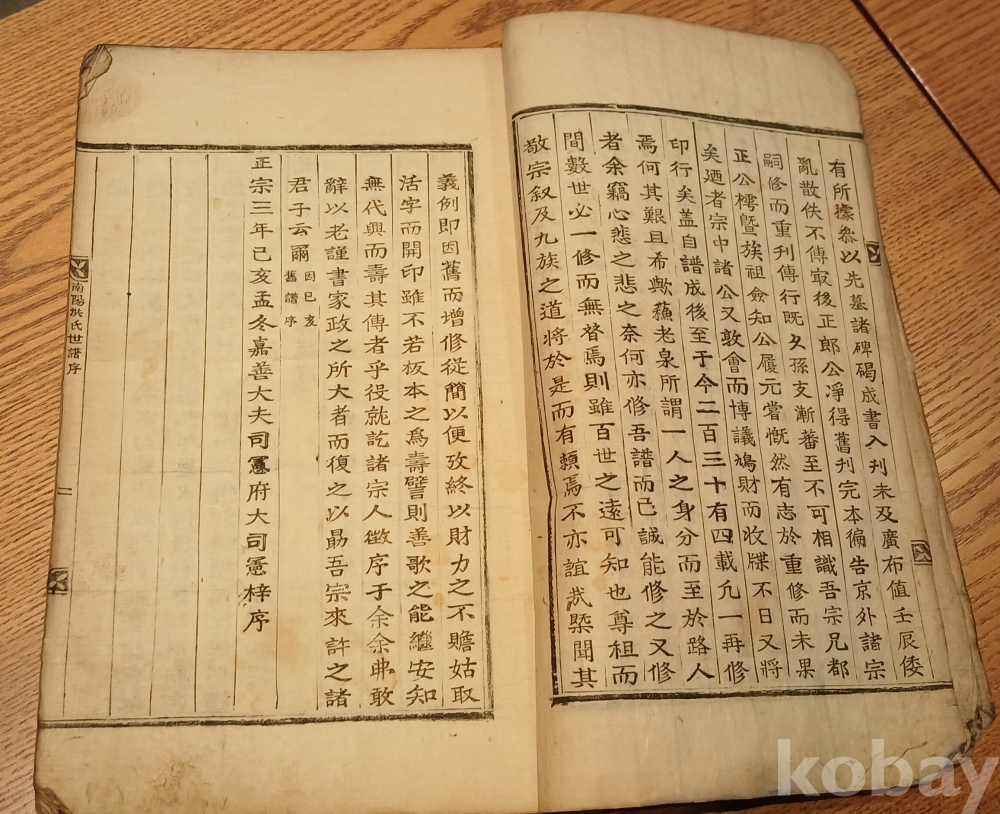 有所據叅以先墓諸碑碣成書入刊未及廣布值壬辰倭
亂散佚不傳㝡後正郎公淨得舊刊完本徧告京外諸宗
嗣修而重刊傳行既久孫支漸蕃至不可相識吾宗兄都
正公樗曁族祖僉知公履元嘗慨然有志於重修而未果
矣廼者宗中諸公又敦會而博議鳩財而收牒不日又將
印行矣盖自譜成後至于今二百三十有四載凢一再修
焉何其艱且希歟蘓老泉所謂一人之身分而至於路人
者余竊心悲之悲之奈何亦修吾譜而已誠能修之又修
間數世必一修而無替焉則雖百世之遠可知也尊祖而
敬宗叙及九族之道將於是而有賴焉不亦誼㢤槩聞其
義例即因舊而增修從簡以便攷終以財力之不贍姑取
活字而開印雖不若板本之爲壽譬則善歌之能繼安知
無代興而壽其傳者乎役就訖諸宗人徵序于余余弗敢
辭以老謹書家政之所大者而復之以勗吾宗來許之諸
君子云爾 因己亥舊譜序
正宗三年己亥孟冬嘉善大夫司憲府大司憲梓序
南陽洪氏世譜序
二
kobay